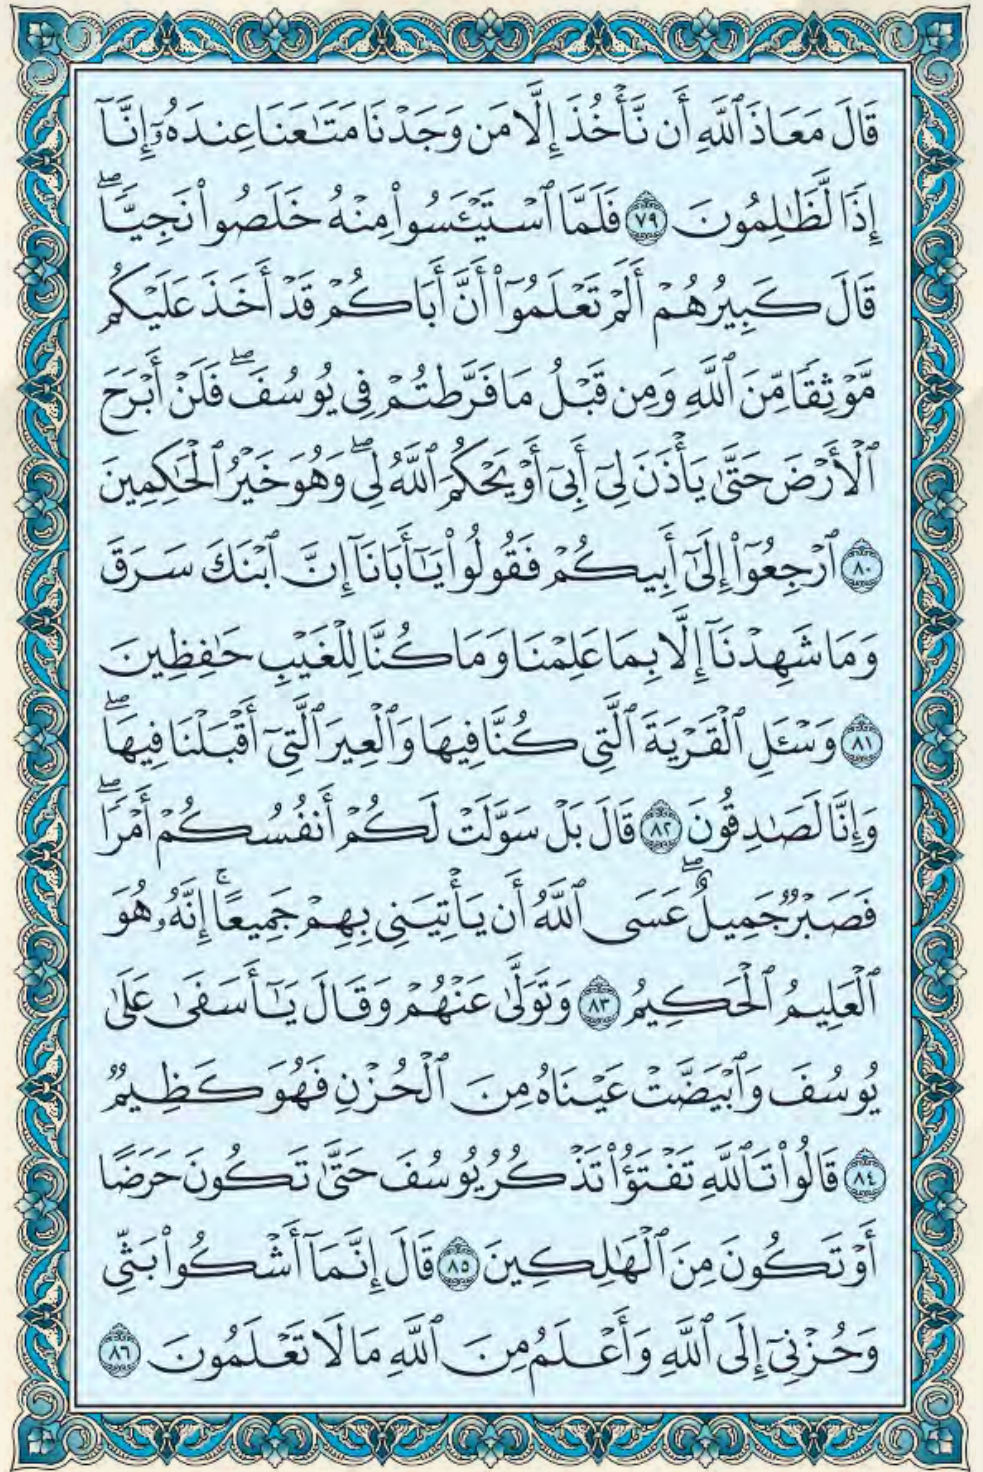 قَالَ مَعَاذَ ٱللَّهِ أَن نَّأْخُذَ إِلَّا مَن وَجَدْنَا مَتَٰعَنَا عِندَهُۥٓ إِنَّآ
إِذًا لَّظَٰلِمُونَ ٧٩ فَلَمَّا ٱسْتَيْـَٔسُوا۟ مِنْهُ خَلَصُوا۟ نَجِيًّاۖ
قَالَ كَبِيرُهُمْ أَلَمْ تَعْلَمُوٓا۟ أَنَّ أَبَاكُمْ قَدْ أَخَذَ عَلَيْكُم
مَّوْثِقًا مِّنَ ٱللَّهِ وَمِن قَبْلُ مَا فَرَّطتُمْ فِى يُوسُفَۖ فَلَنْ أَبْرَحَ
ٱلْأَرْضَ حَتَّىٰ يَأْذَنَ لِىٓ أَبِىٓ أَوْ يَحْكُمَ ٱللَّهُ لِىۖ وَهُوَ خَيْرُ ٱلْحَٰكِمِينَ
٨٠ ٱرْجِعُوٓا۟ إِلَىٰٓ أَبِيكُمْ فَقُولُوا۟ يَٰٓأَبَانَآ إِنَّ ٱبْنَكَ سَرَقَ
وَمَا شَهِدْنَآ إِلَّا بِمَا عَلِمْنَا وَمَا كُنَّا لِلْغَيْبِ حَٰفِظِينَ
٨١ وَسْـَٔلِ ٱلْقَرْيَةَ ٱلَّتِى كُنَّا فِيهَا وَٱلْعِيرَ ٱلَّتِىٓ أَقْبَلْنَا فِيهَاۖ
وَإِنَّا لَصَٰدِقُونَ ٨٢ قَالَ بَلْ سَوَّلَتْ لَكُمْ أَنفُسُكُمْ أَمْرًاۖ
فَصَبْرٌ جَمِيلٌۖ عَسَى ٱللَّهُ أَن يَأْتِيَنِى بِهِمْ جَمِيعًاۚ إِنَّهُۥ هُوَ
ٱلْعَلِيمُ ٱلْحَكِيمُ ٨٣ وَتَوَلَّىٰ عَنْهُمْ وَقَالَ يَٰٓأَسَفَىٰ عَلَىٰ
يُوسُفَ وَٱبْيَضَّتْ عَيْنَاهُ مِنَ ٱلْحُزْنِ فَهُوَ كَظِيمٌ
٨٤ قَالُوا۟ تَٱللَّهِ تَفْتَؤُا۟ تَذْكُرُ يُوسُفَ حَتَّىٰ تَكُونَ حَرَضًا
أَوْ تَكُونَ مِنَ ٱلْهَٰلِكِينَ ٨٥ قَالَ إِنَّمَآ أَشْكُوا۟ بَثِّى
وَحُزْنِىٓ إِلَى ٱللَّهِ وَأَعْلَمُ مِنَ ٱللَّهِ مَا لَا تَعْلَمُونَ ٨٦